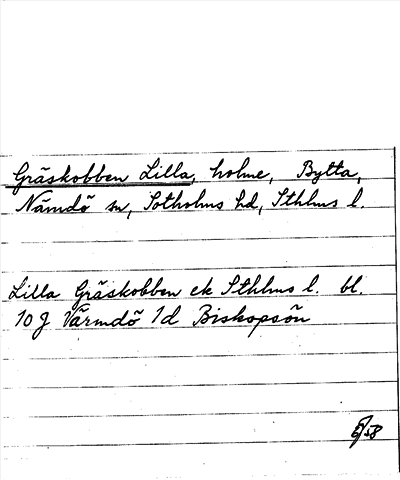 Gräskobben Lilla, holme, Bytta,
Nämdö sn, Sotholms hd, Sthlms l.
Lilla Gräskobben ek Sthlms l. bl.
10 J Värmdö 1d Biskopsön
58